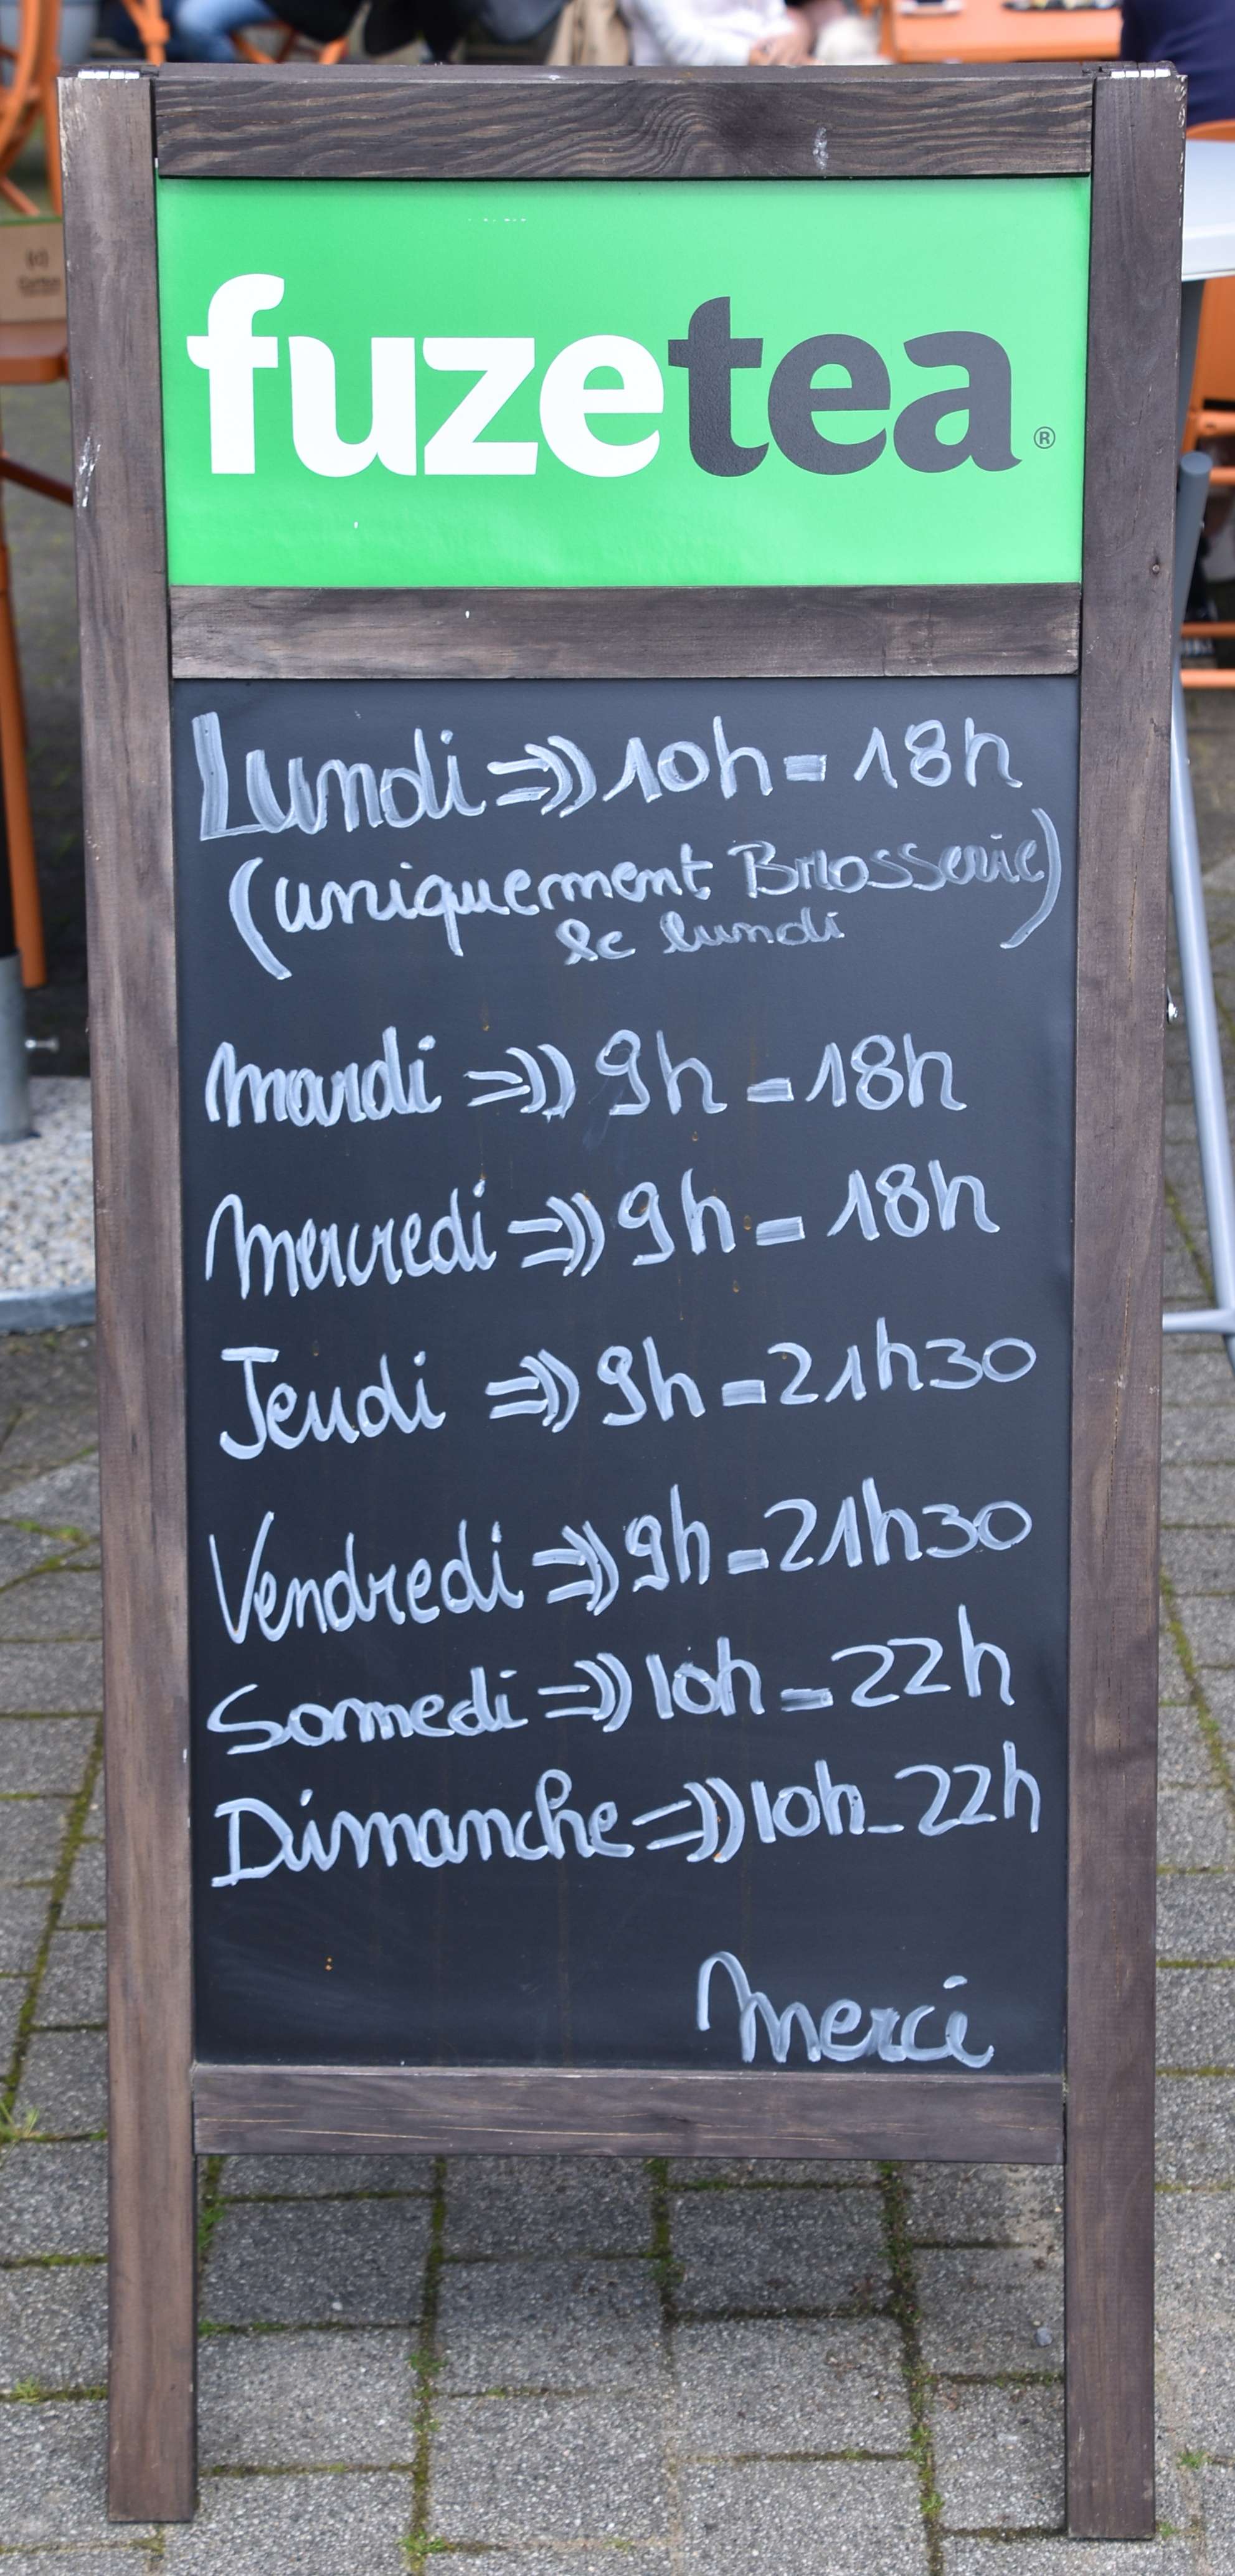 fuzetea®
Lundi =>)) 10h - 18h
(uniquement Brasserie)
le lundi
mardi =>)) 9h - 18h
mercredi =>)) 9h - 18h
Jeudi =>)) 9h - 21h30
Vendredi =>)) 9h - 21h30
Samedi =>)) 10h - 22h
Dimanche =>)) 10h - 22h
Merci